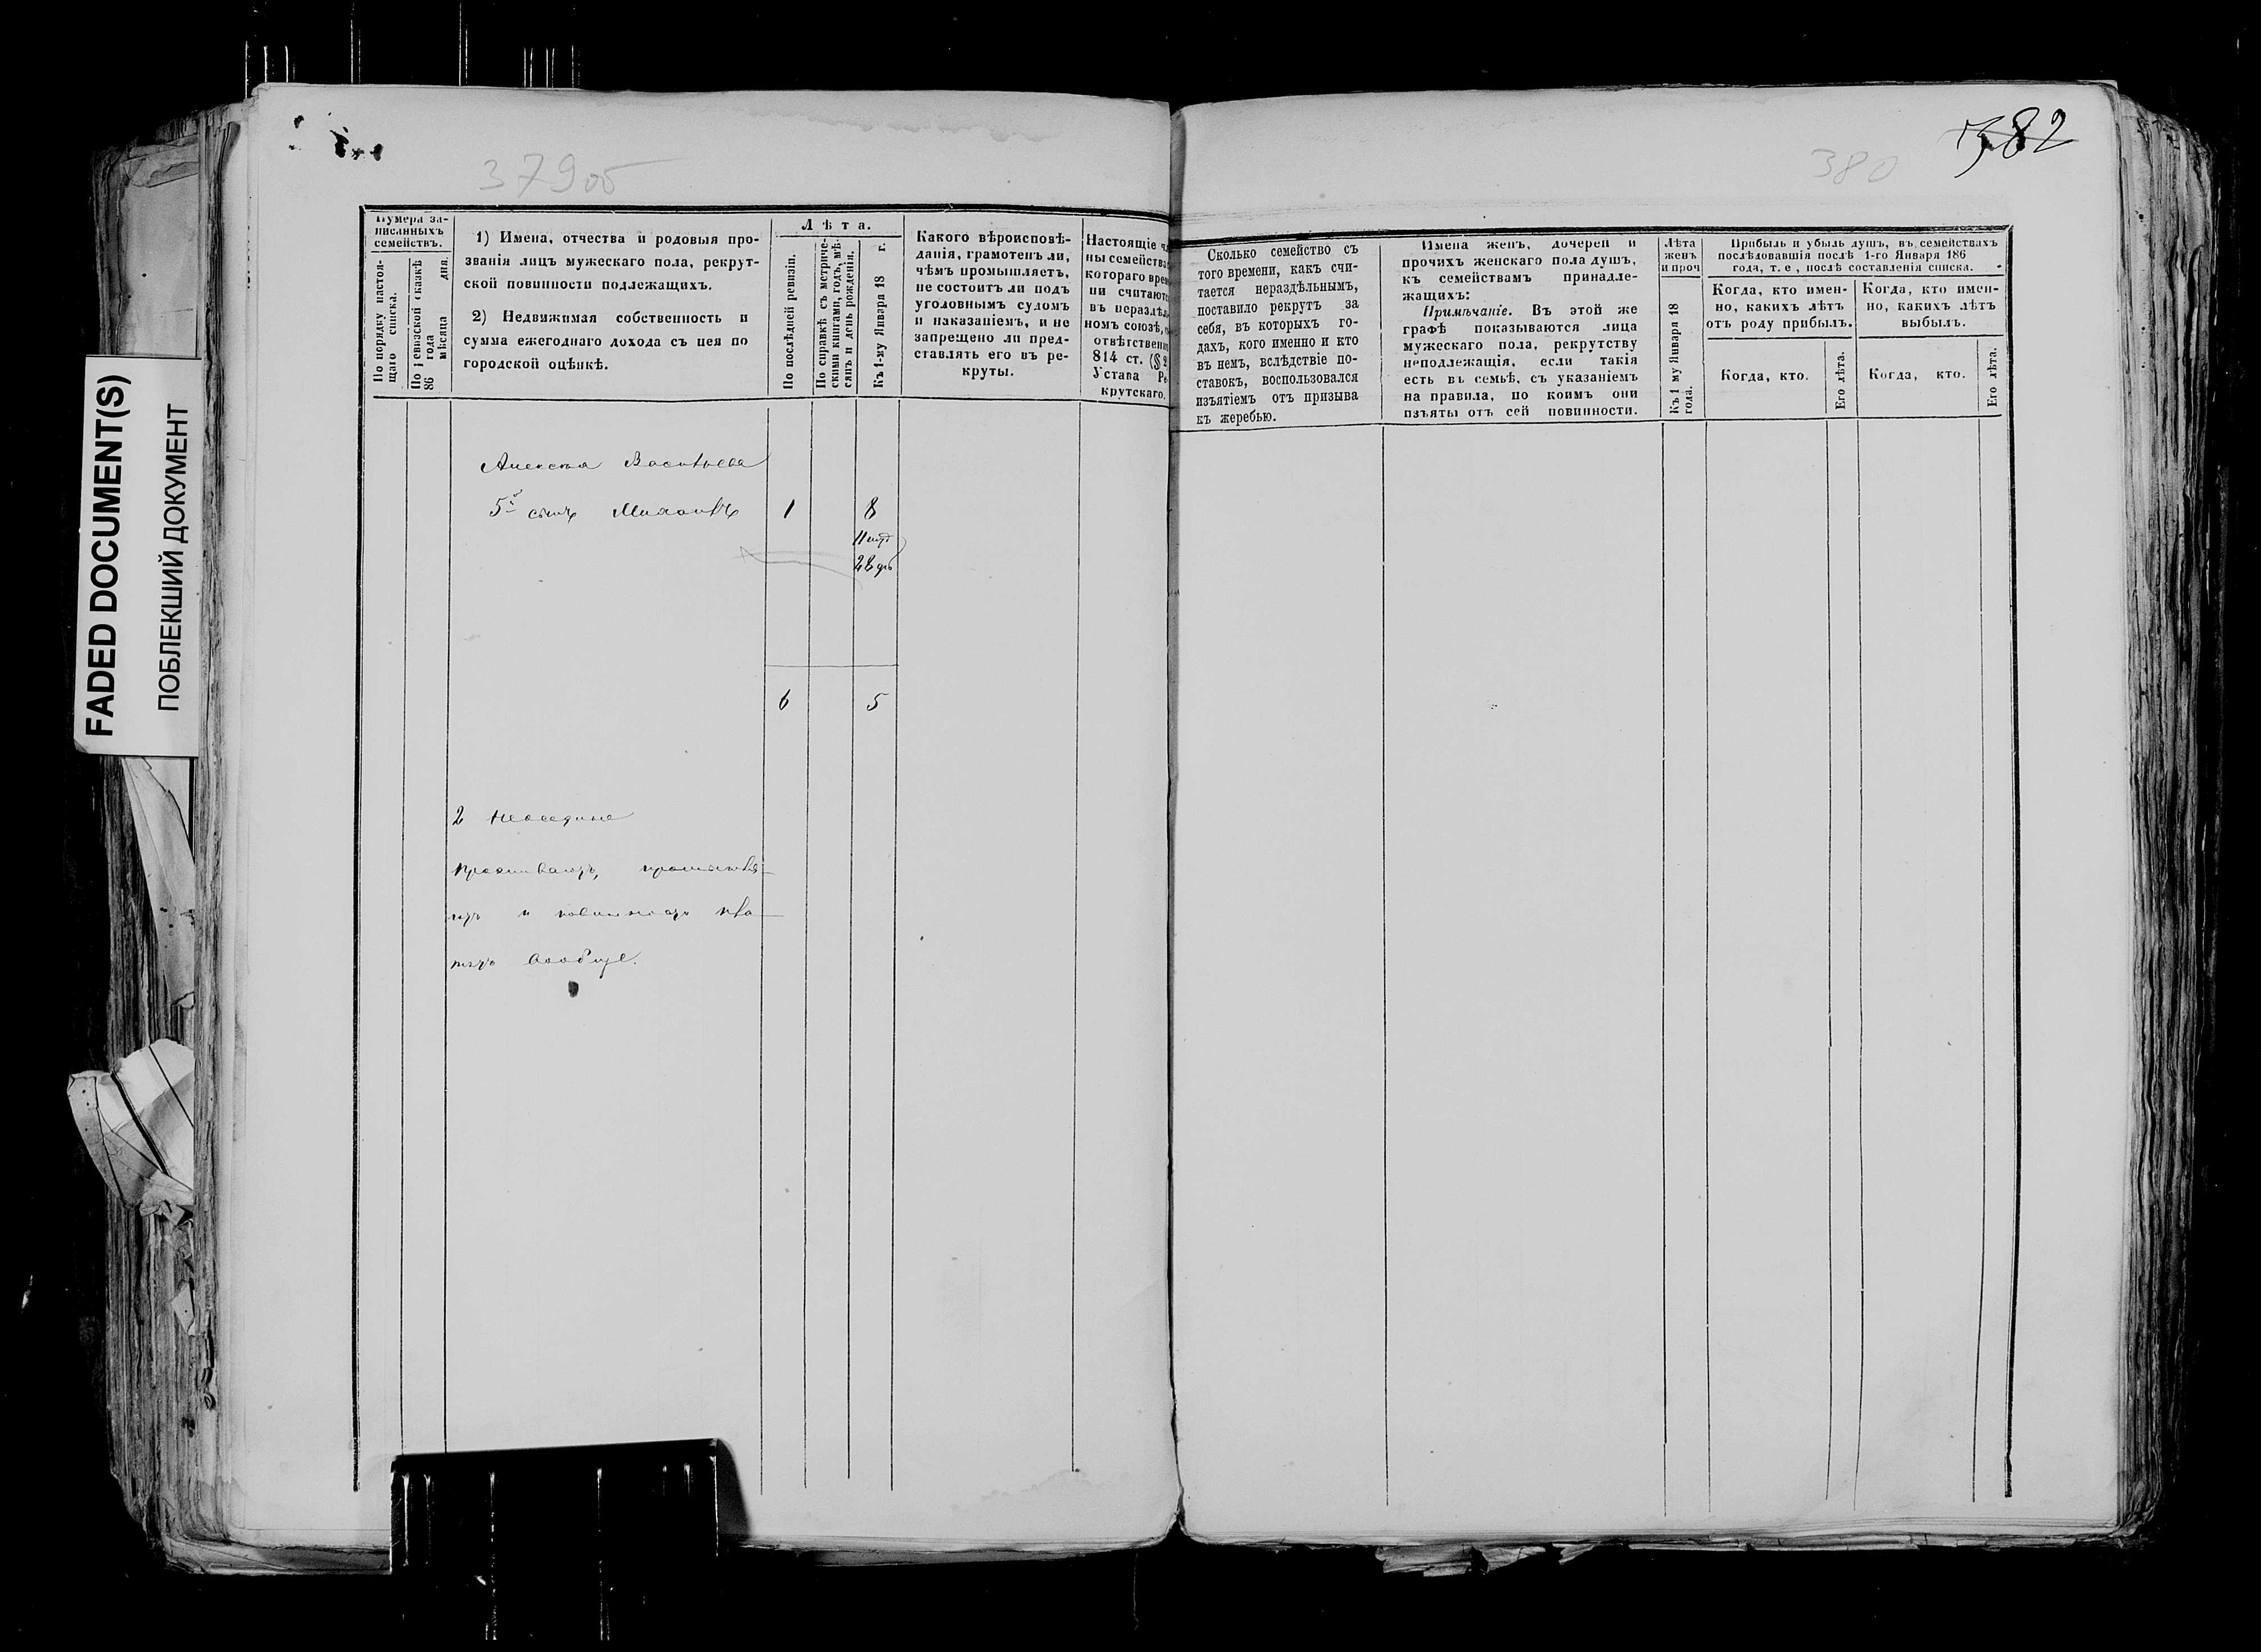 FADED DOCUMENT(S)
ПОБЛЕКШИЙ ДОКУМЕНТ
379об
Нумера за-
писанныхъ
семействъ.
По порядку настоя-
щаго списка.
По ревизской сказкѣ
86 года
мѣсяца дня.
1) Имена, отчества и родовыя про-
званія лицъ мужескаго пола, рекрут-
ской повинности подлежащихъ.
2) Недвижимая собственность и
сумма ежегоднаго дохода съ нея по
городской оцѣнкѣ.
Лѣта.
По послѣдней ревизіи.
По справкѣ съ метриче-
скими книгами, годъ, мѣ-
сяцъ и день рожденія.
Къ 1-му Января 18 г.
Какого вѣроисповѣ-
данія, грамотенъ ли,
чѣмъ промышляетъ,
не состоитъ ли подъ
уголовнымъ судомъ
и наказаніемъ, и не
запрещено ли пред-
ставлять его въ ре-
круты.
Настоящіе ч
ны семейства
котораго вре
ни считают
въ нераздѣл
номъ союзѣ,
отвѣтствен
814 ст. (§ 2
Устава Ре
крутскаго.
Васильева
5й сынъ
1
8
6
5
2
проживаютъ,
и
вообще.
380
382
Сколько семейство съ
того времени, какъ счи-
тается нераздѣльнымъ,
поставило рекрутъ за
себя, въ которыхъ го-
дахъ, кого именно и кто
въ немъ, вслѣдствіе по-
ставокъ, воспользовался
изъятіемъ отъ призыва
къ жеребью.
Имена женъ, дочерей и
прочихъ женскаго пола душъ,
къ семействамъ принадле-
жащихъ:
Примѣчаніе. Въ этой же
графѣ показываются лица
мужескаго пола, рекрутству
неподлежащія, если такія
есть въ семьѣ, съ указаніемъ
на правила, по коимъ они
изъяты отъ сей повинности.
Лѣта
женъ
и проч
Къ 1 му Января 18
года.
Прибыль и убыль душъ, въ семействахъ
послѣдовавшія послѣ 1-го Января 186
года, т. е , послѣ составленія списка.
Когда, кто имен-
но, какихъ лѣтъ
отъ роду прибылъ.
Когда, кто.
Его лѣта.
Когда, кто имен-
но, какихъ лѣтъ
выбылъ.
Когда, кто.
Его лѣта.